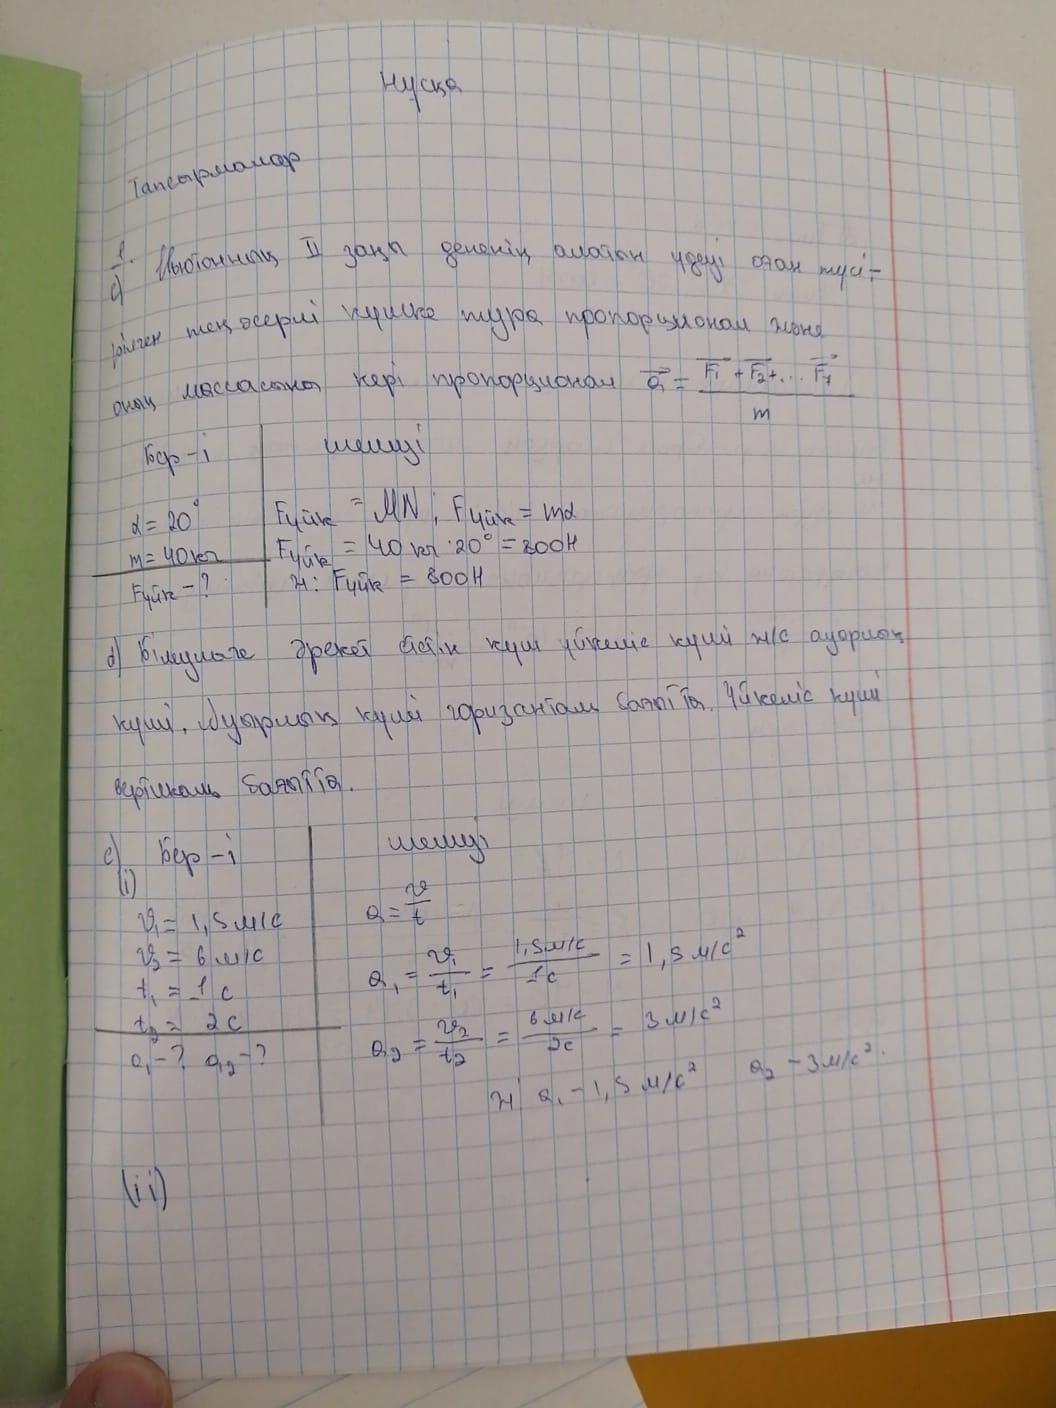 Нұсқа
Тапсырмалар
1.
c) Ньютонның II заңы дененің алатын үдеуі оған түсі-
рілген тең әсерлі күшке тура пропорционал және
оның массасына кері пропорционал a₁ = F₁ + F₂+... F₇ / m
Бер-і шешуі
α = 20° Fүйк = MN; Fүйк = mα
m = 40кг Fүйк = 40кг·20° = 800Н
Fүйк - ? Ж: Fүйк = 800Н
d) әрекет күш үйкеліс күші ж/с ауырлық
күші. Ауырлық күші горизанталь бағытта. Үйкеліс күші
вертікаль бағытта.
c) Бер-і шешуі
(i)
υ₁ = 1,5 м/с a = υ/t
υ₂ = 6 м/с a₁ = υ₁/t₁ = 1,5м/с / 1с = 1,5 м/с²
t₁ = 1 с
t₂ = 2с a₂ = υ₂/t₂ = 6 м/с / 2с = 3 м/с²
a₁-? a₂-?
Ж a₁ - 1,5 м/с² a₂ - 3м/с².
(ii)